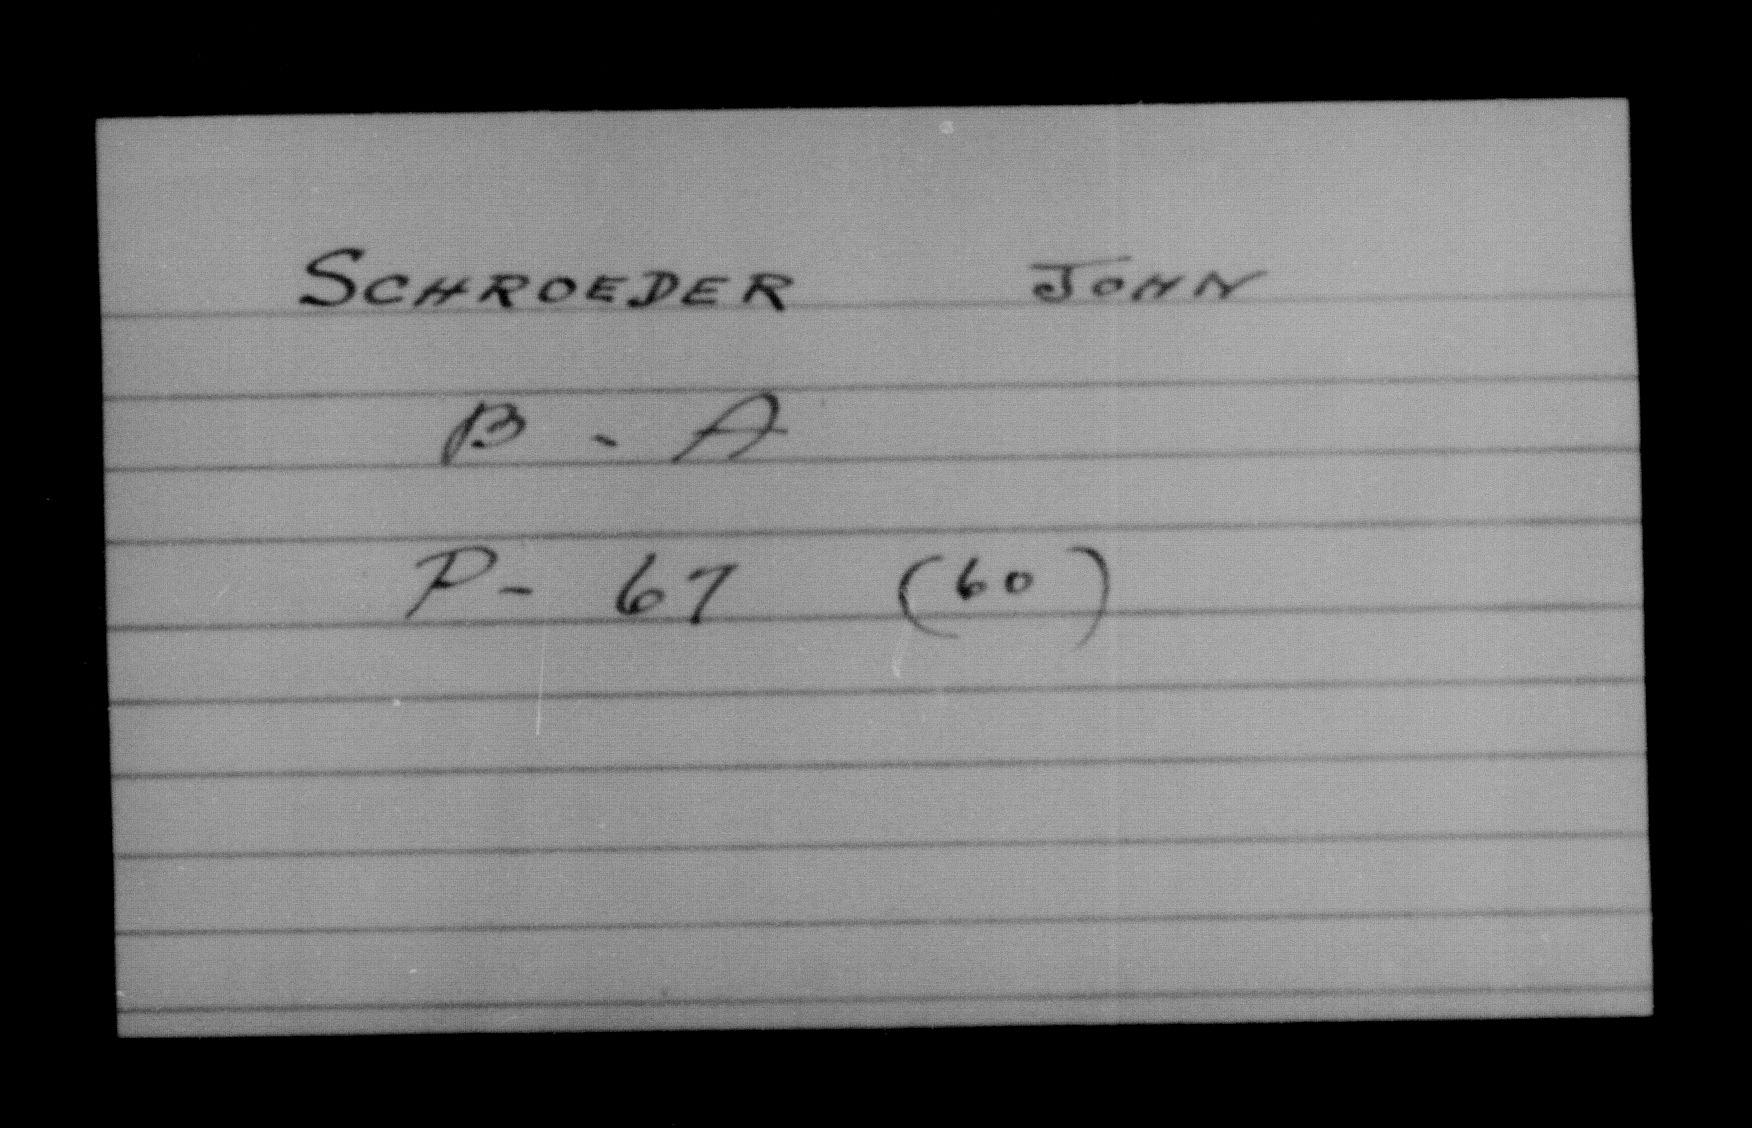 SCHROEDER JOHN
B - A
P - 67 (60)